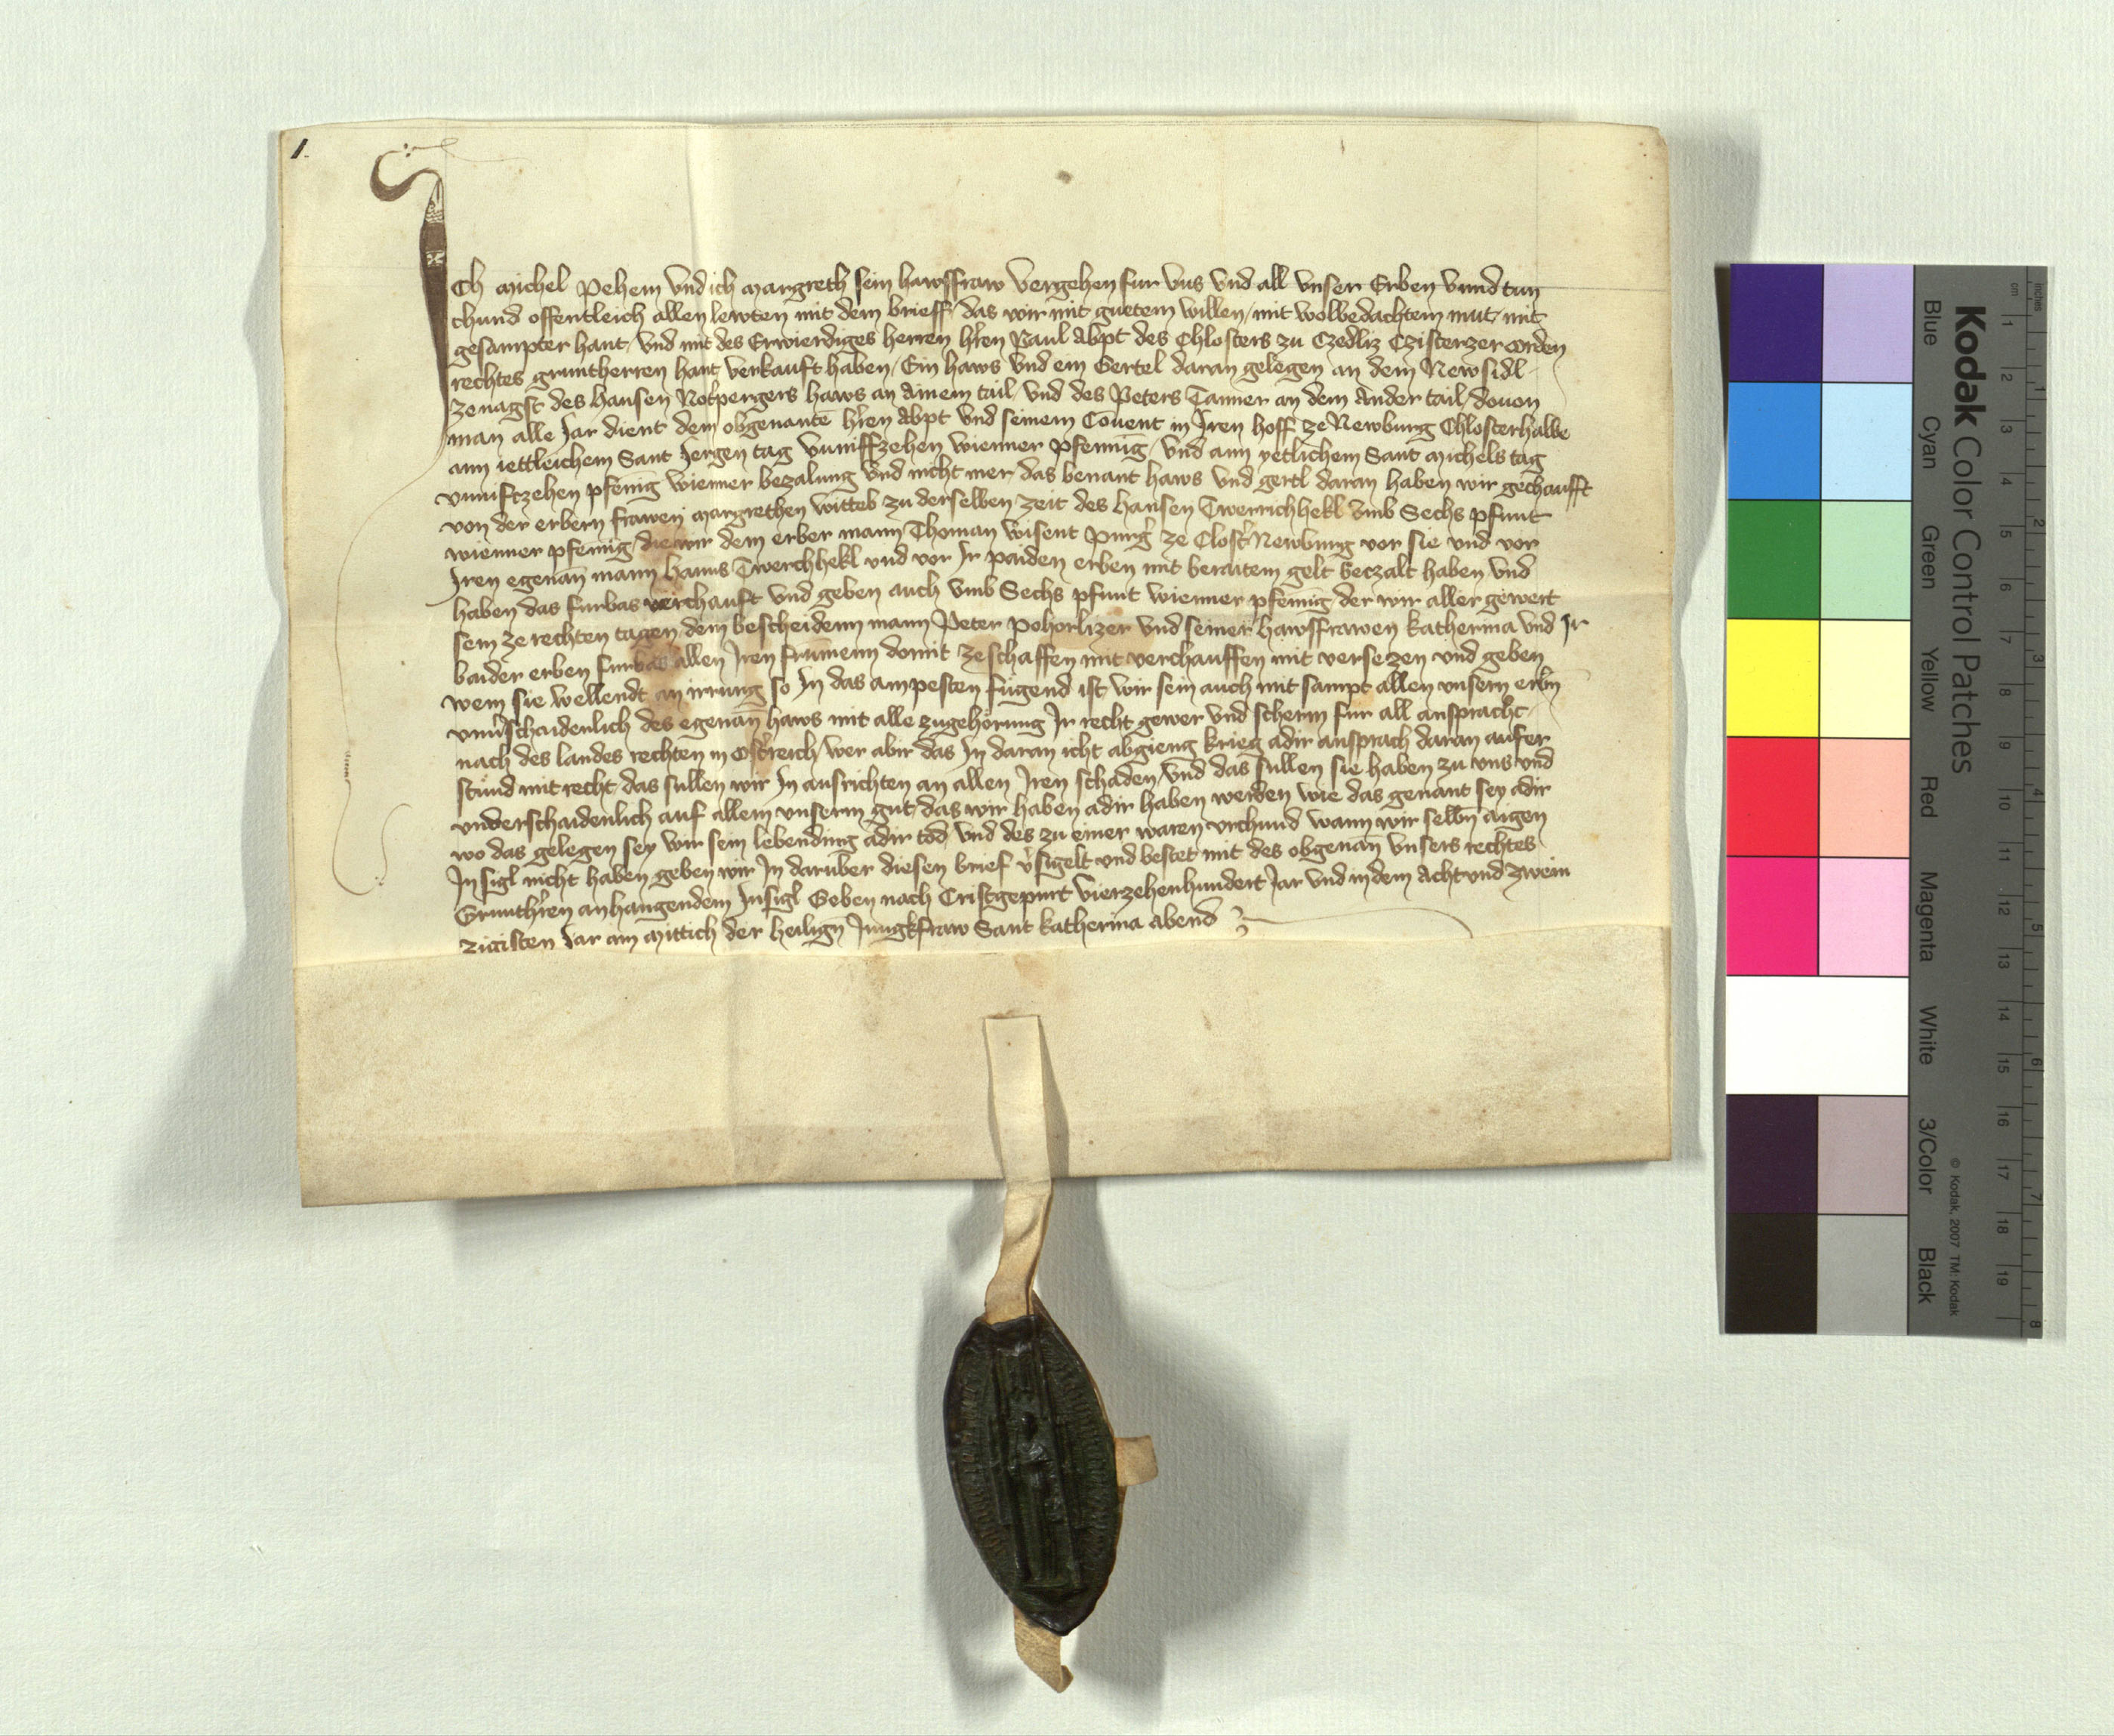 1.
Ich Michel Pehem Vnd ich Margreth sein hawsfraw Vergehen fur vns vnd all vnser Erben vnnd tun
chund offentleich allen lewten mit dem brieff das wir mit guetem willen / mit wolbedachtem mut / mit
gesampter hant / vnd mit des Erwierdiges herren hren Paul Abpt des Chlosters zu Czedliz Czisterzer orden
rechtes gruntherren hant verkauft haben / Ein haws vnd ein Gertel daran gelegen an dem Newsidl
zenagst des hansen Notpergers haws an ainem tail / vnd des Peters Tanner an dem Ander tail / douon
man alle Jar dient dem obgenante hren Abpt vnd seinem Couent in Jren hoff ze Newburg Chlosterhalbe
ann iettleichem Sant Jergen tag vumffzehen wienner pfennig / vnd ann yetlichem Sant Michels tag
vumftzehen pfenig wienner bezalung vnd nicht mer / das benant haws vnd gertl daran haben wir gechaufft
von der erbern frawen Margrethen witteb zu derselben zeit des hansen Twerrichhekl vmb Sechs pfunt
wienner pfennig / die wir dem erber mann Thoman wisent purg ze Clost Newburg vor sie vnd vor
Jren egenan mann hanns Twerchhekl vnd vor Jr paiden erben mit beraitem gelt beczalt haben vnd
haben das furbas verchauft vnd geben auch vmb Sechs pfunt wienner pfennig / der wir aller gewert
sein ze rechten tagen dem bescheidenn mann Peter Pohorlizer vnd seiner hawsfrawen Katherina vnd Jr
baider erben furbas allen Jren frumenn domit ze schaffen mit verchauffen mit versezen vnd geben
wem sie wellendt an irrung so Jn das am pesten fugend ist / wir sein auch mit sampt allen vnsern erbn
vnuschaidenlich des egenan haws mit alle zugehorung Jr recht gewer vnd scherm fur all ansprach
nach des landes rechten in Ostreich / wer abir das Jn daran icht abgieng krieg adir ansprach daran aufer
stund mit recht / das sullen wir Jn ausrichten an allen Jren schaden / vnd das sullen sie haben zu vns vnd
vnderschaidenlich auf allem vnserm gut / das wir haben adir haben werden wie das genant sey adir
wo das gelegen sey wir sein lebending adir tod / vnd des zu einer waren vrchund wann wir selbn aigen
Jnsigl nicht haben geben wir Jn daruber diesen brief vsigelt vnd bestet mit des obgenan vnsers rechtes
Grunthren anhangendem Jnsigl Geben nach Cristgepurt Vierzehenhundert Jar vnd in dem Acht vnd zwein
zigisten Jar am Mittich der heilign Jungkfraw Sant Katherina abend
Kodak Color Control Patches
Blue Cyan Green Yellow Red Magenta White 3/Color Black
© Kodak, 2007 TM: Kodak
cm 1 2 3 4 5 6 7 8 9 10 11 12 13 14 15 16 17 18 19
inches 1 2 3 4 5 6 7 8